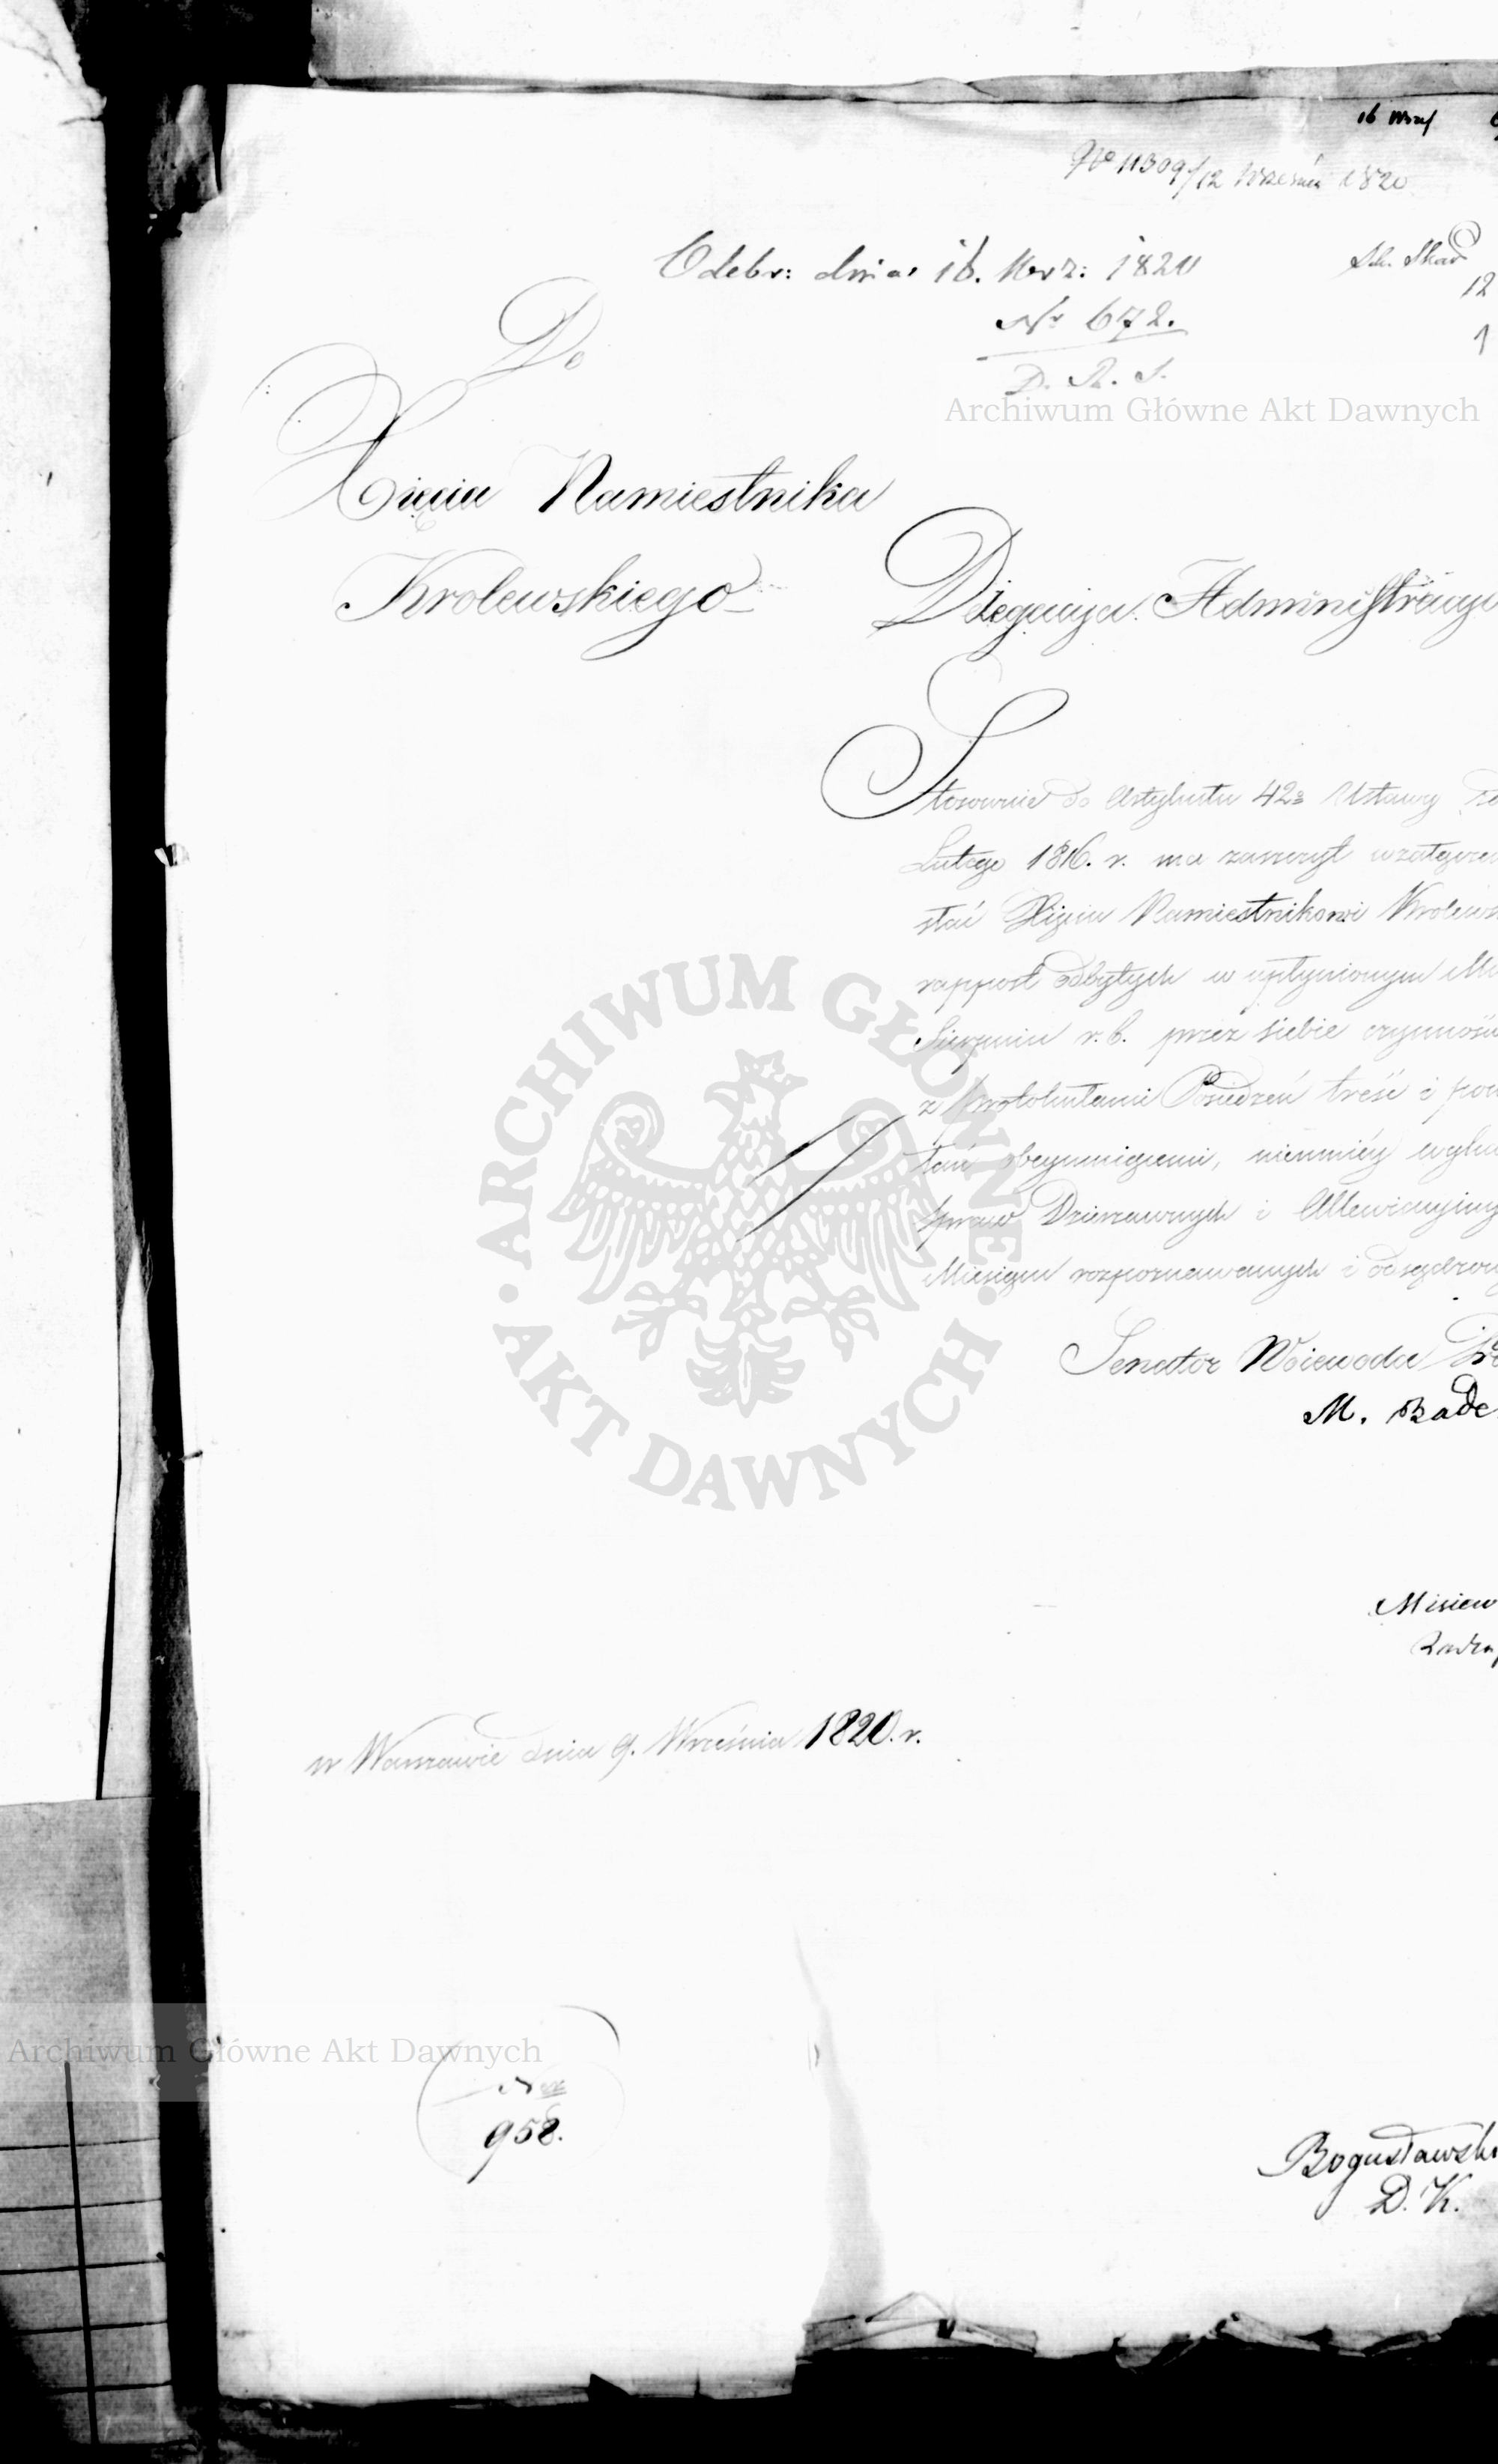 16 Wrześ
No 11309/12 Wrześn 1820
Odebr: dnia 16. Wrz: 1820
Nr 672.
D. A. S.
12
1
Archiwum Główne Akt Dawnych
Do
Xięcia Namiestnika
Krolewskiego
Delegacya Administracy
Stosownie do Artykułu 42. Ustawy
Lutego 1816. r. ma zaszczyt w załącze
słać Xięciu Namiestnikowi Krolews
rapport odbytych w upłynionym Mie
Sierpniu r. b. przez siebie czynnośc
z protokułami Posiedzeń treść i pow
tań obeymuiącemi, niemniéy wyka
spraw Dzierzawnych i Allewiacyiny
Miesiącu rozpoznawanych i odsądzony
Senator Woiewoda Pre
M. Bade
ARCHIWUM GŁÓWNE · AKT DAWNYCH ·
Misiew
w Warszawie dnia 9. Września 1820. r.
Archiwum Główne Akt Dawnych
Nro
958.
Bogusławski
D. K.